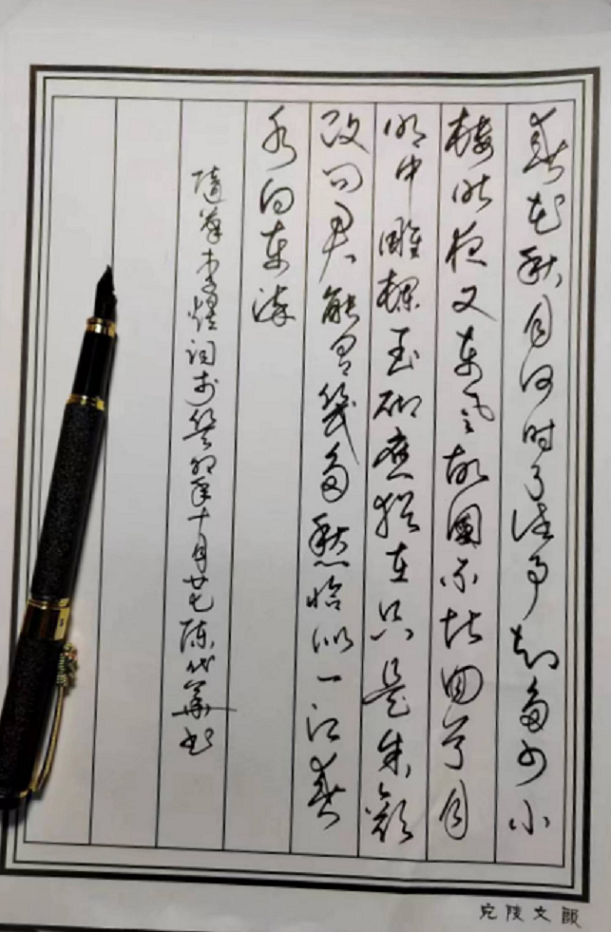 春花秋月何时了往事知多少小
楼昨夜又东风故国不堪回首月
明中雕栏玉砌应犹在只是朱颜
改问君能有几多愁恰似一江春
水向东流
随笔李煜词于癸卯年十月廿七陈代华书
宛陵文颐